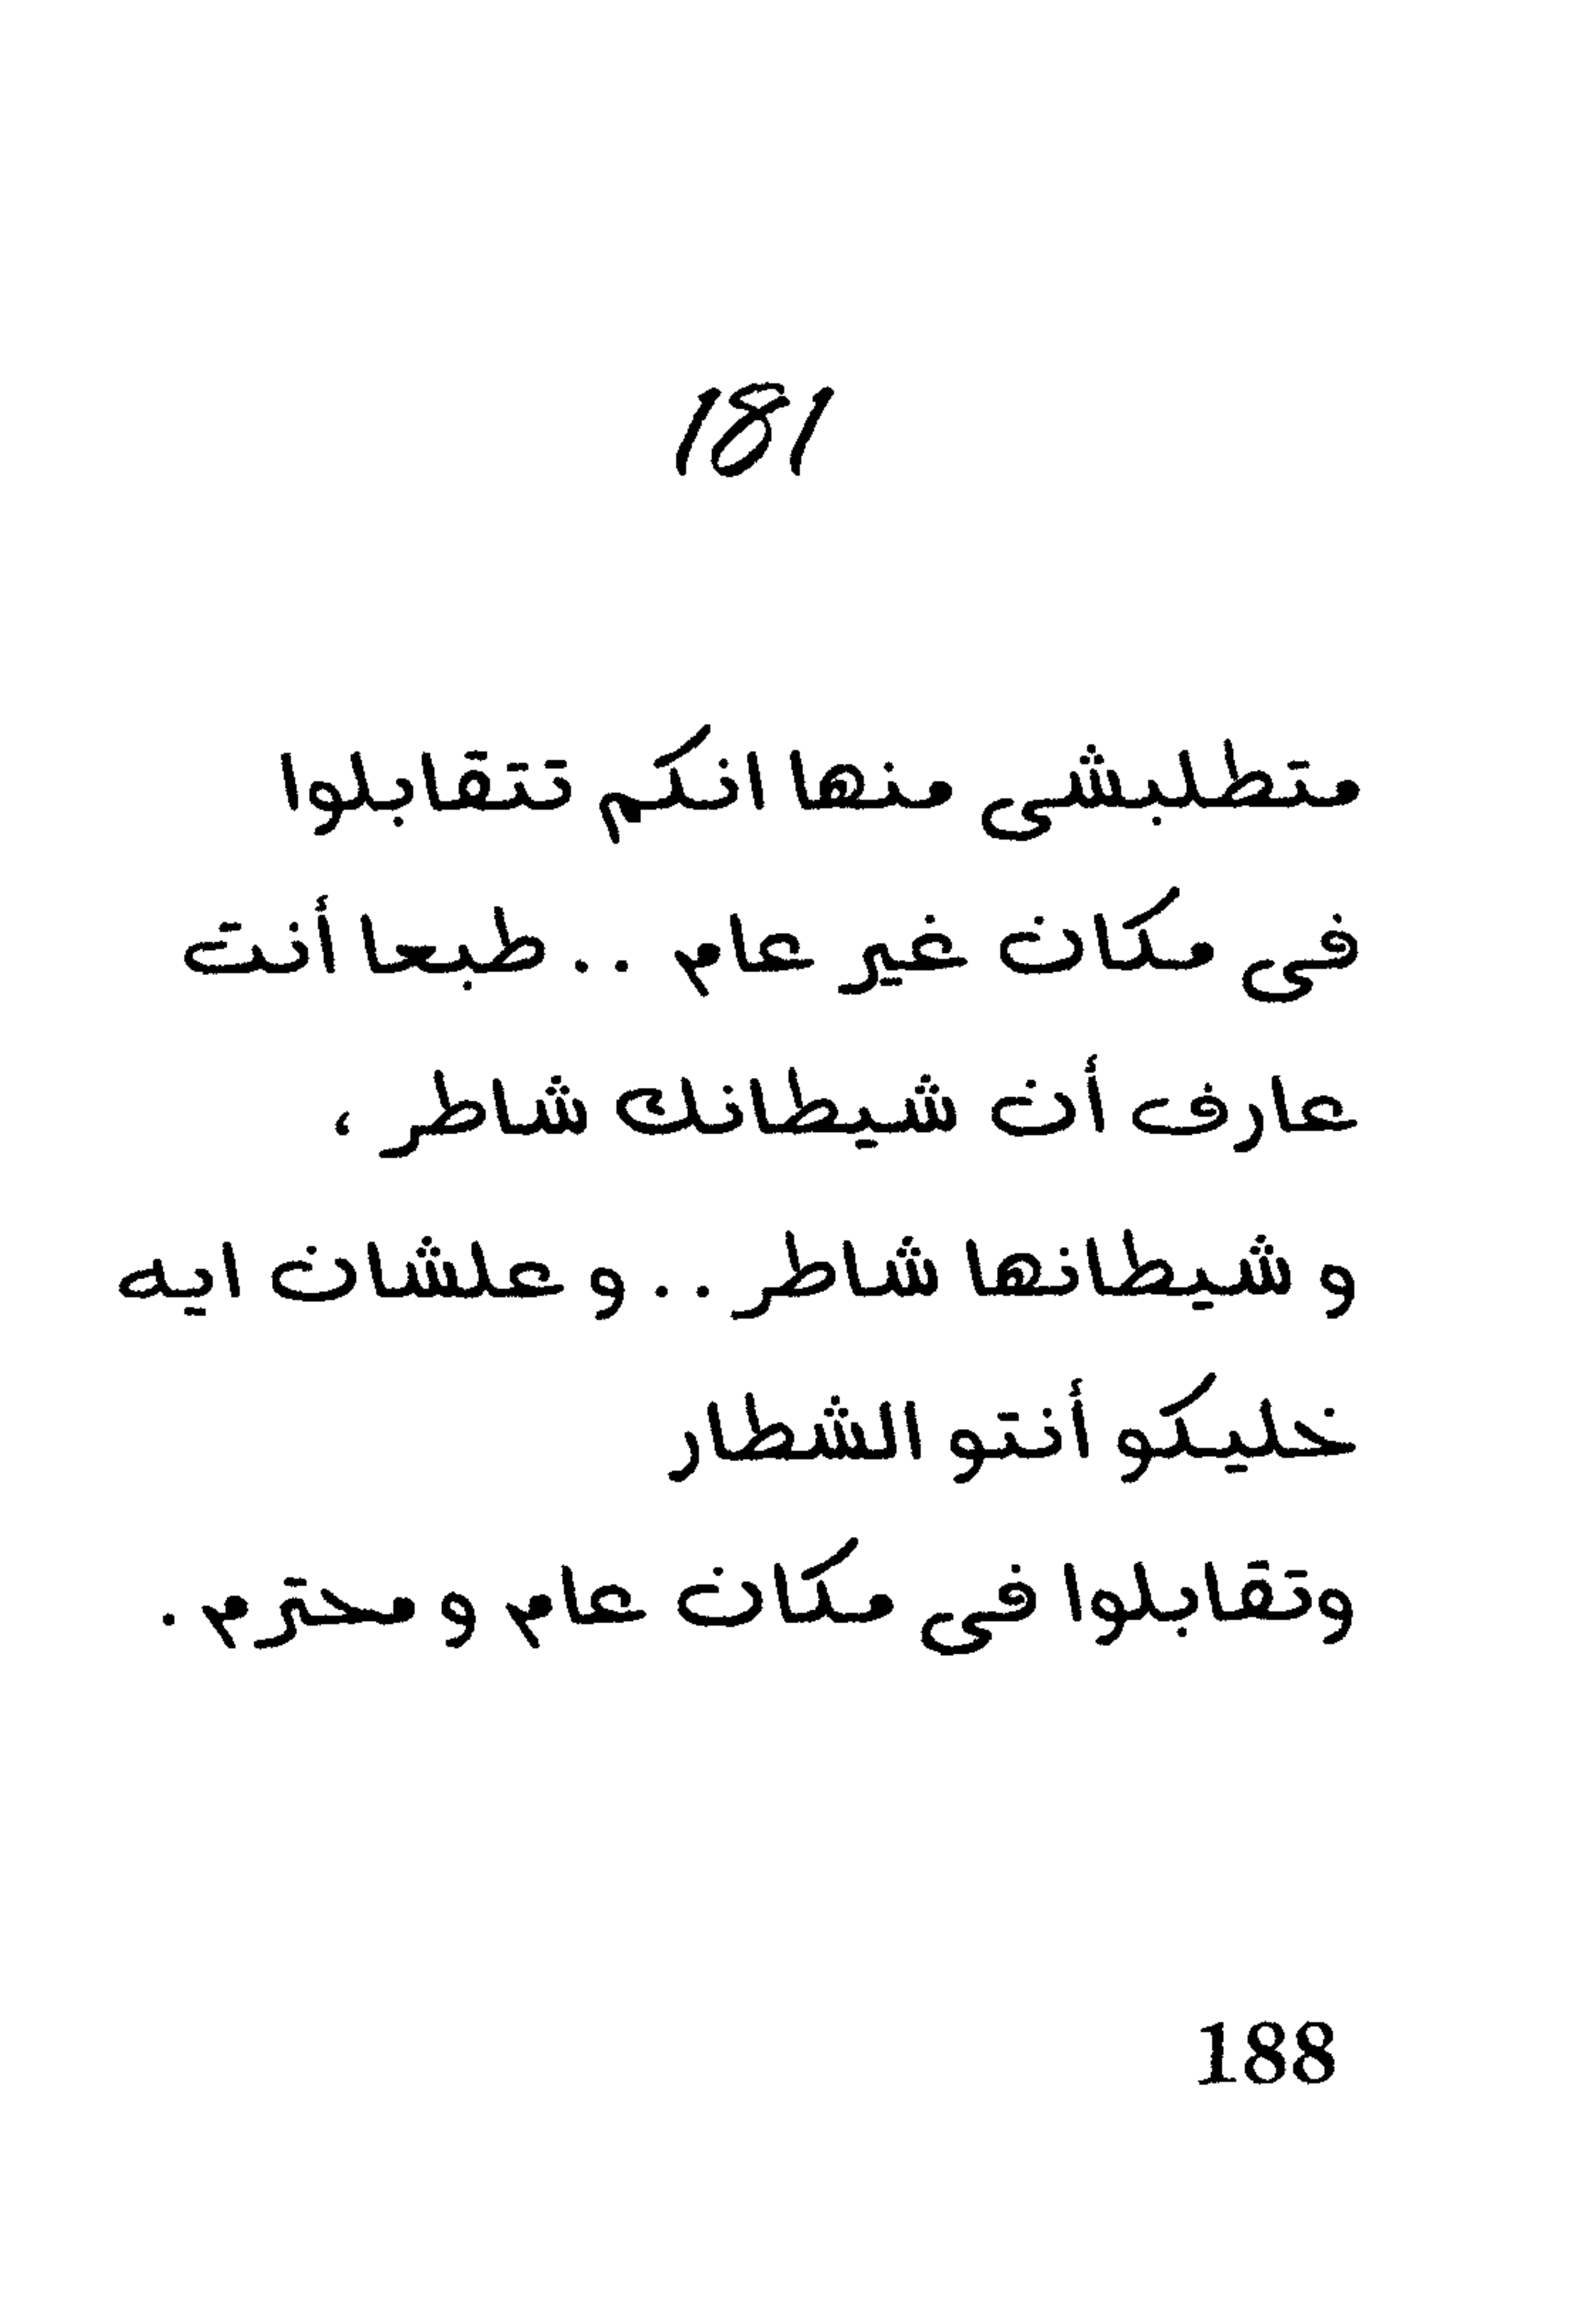 181
متطلبشى منها انكم تتقابلوا
فى مكان غير عام .. طبعا أنت
عارف أن شيطانك شاطر ،
و شيطانها شاطر .. و علشان ايه
خليكو أنتو الشطار
وتقابلوا فى مكان عام و محترم .
188